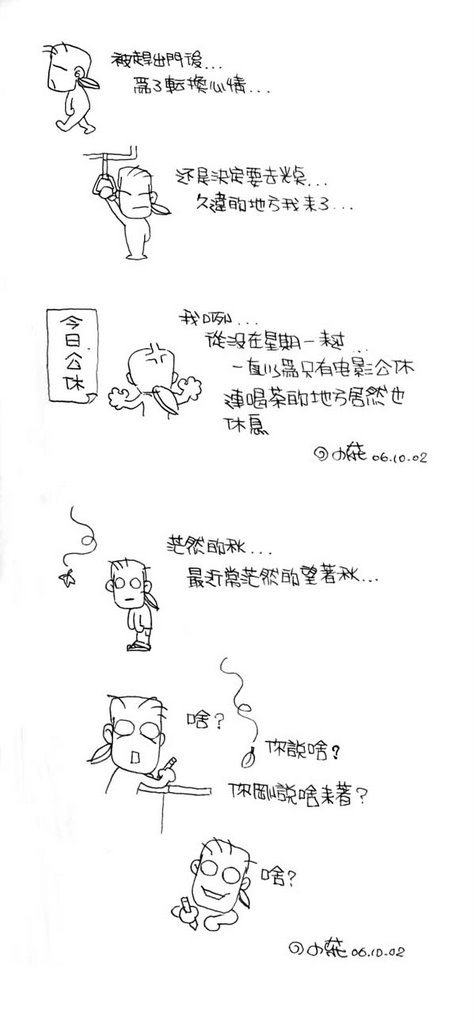 被趕出門後...
爲了転換心情...
还是決定要去光点...
久違的地方我来了...
今日公休
我咧...
從沒在星期一来过...
一直以爲只有电影公休
連喝茶的地方居然也
休息
06.10.02
茫然的秋...
最近常茫然的望著秋...
啥?
你說啥?
你剛說啥来著?
啥?
06.10.02